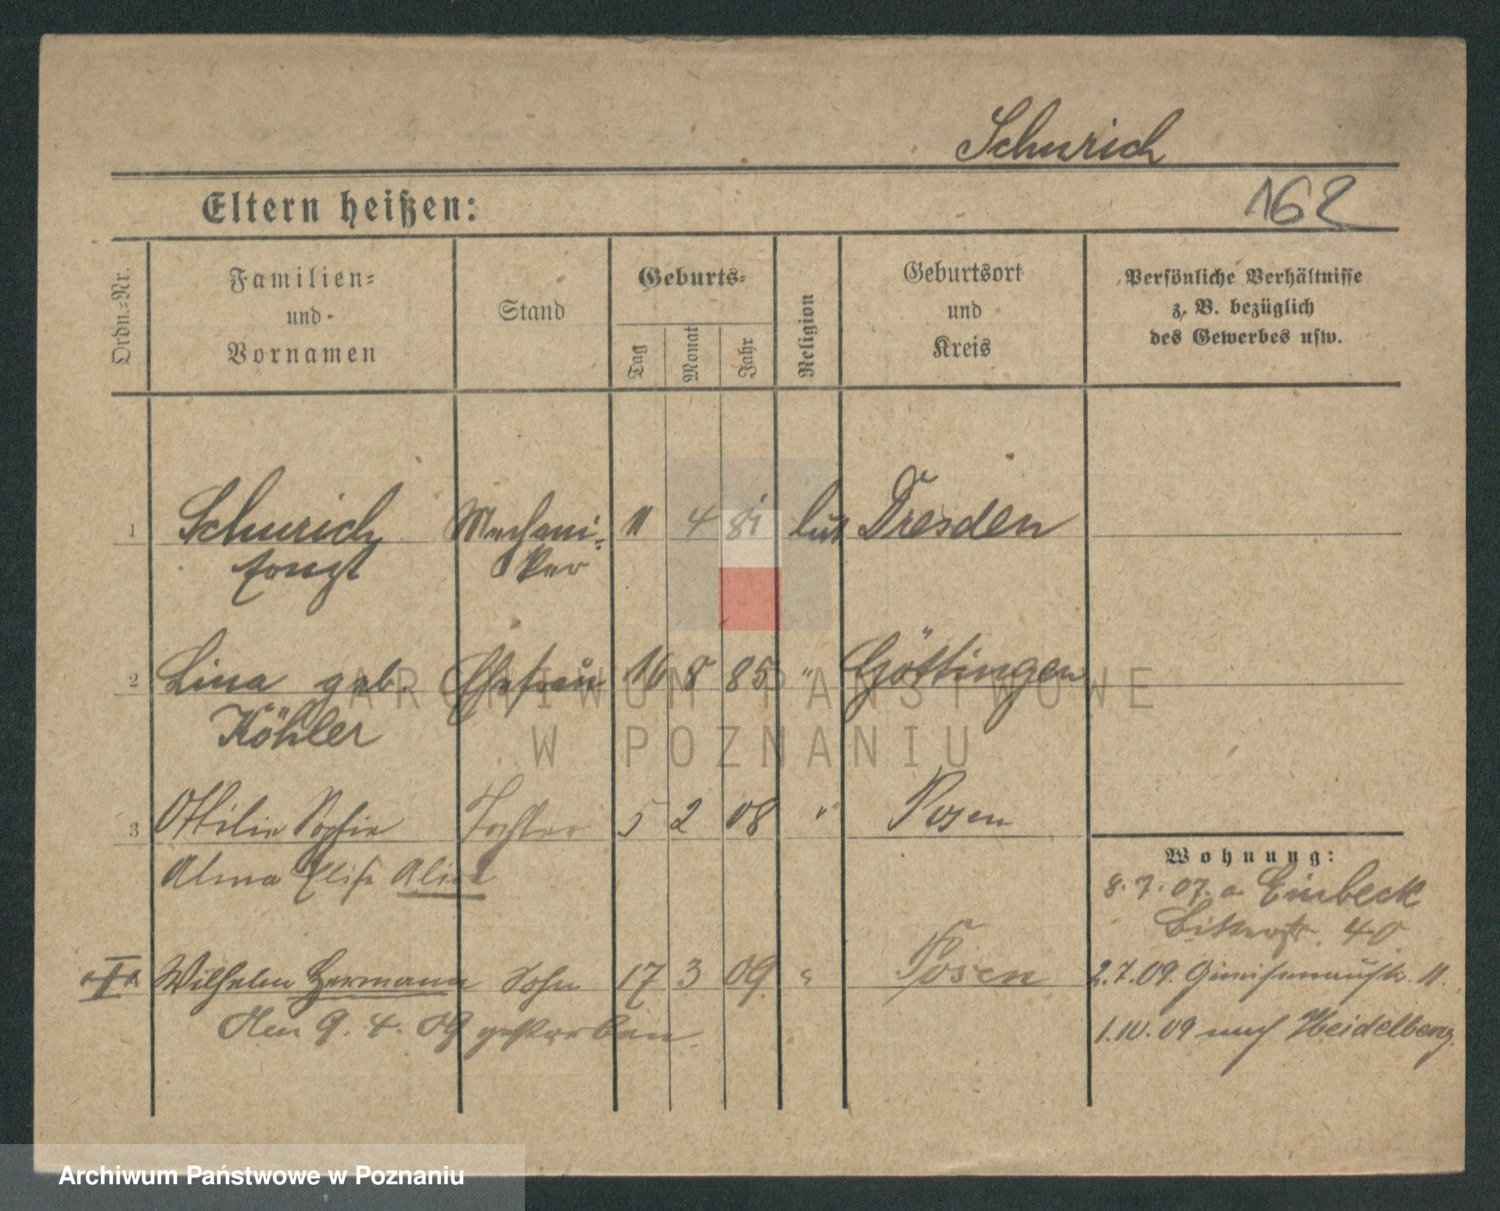 Schurich
Eltern heißen:
162
Ordn.-Nr.
Familien-
und-
Vornamen
Stand
Geburts-
Tag
Monat
Jahr
Religion
Geburtsort
und
Kreis
Persönliche Verhältnisse
z. B. bezüglich
des Gewerbes usw.
1 Schurich Mechani- 11 4 81 luth Dresden
Ernst ker
2 Lina geb. Ehefrau 16 8 85 " Göttingen
Köhler
3 Ottilie Sophie Tochter 5 2 08 " Posen
Alma Elise
Wohnung:
8.7.07. a. Einbeck
40
I Wilhelm Hermann Sohn 17 3 09 " Posen
2.7.09. Gneisenaustr. 11.
Am 9.4.09 gestorben
1.10.09 nach Heidelberg
ARCHIWUM PAŃSTWOWE
W POZNANIU
Archiwum Państwowe w Poznaniu